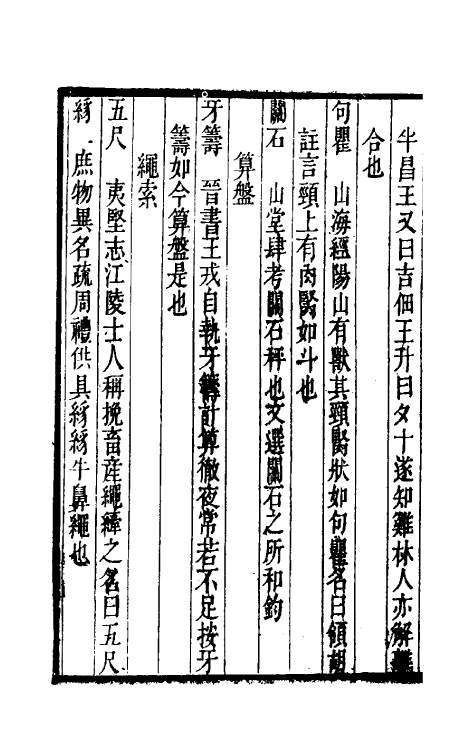 半昌王又曰吉佃王升曰夕十遂知雞林人亦解離
合也
句瞿　山海經陽山有獸其頸䝨狀如句瞿名曰領胡
註言頸上有肉䝨如斗也
關石　山堂肆考關石秤也文選關石之所和鈞
算盤
牙籌　晉書王戎自執牙籌計算徹夜常若不足按牙
籌如今算盤是也
繩索
五尺　夷堅志江陵士人稱挽畜産繩縴之名曰五尺
庶物異名疏周禮供其牛鼻繩也